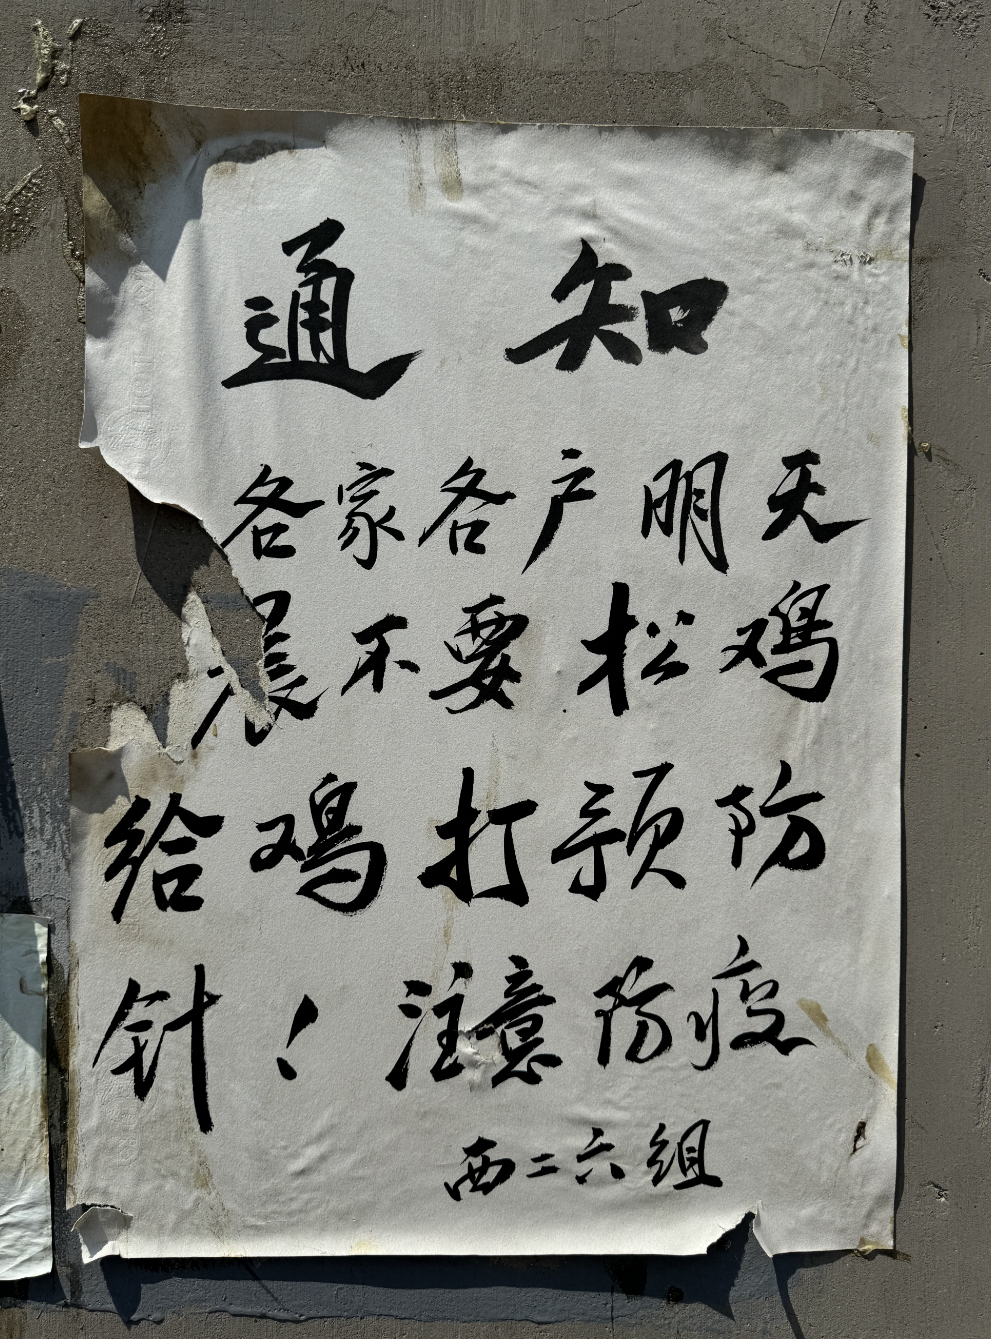 通知
各家各户明天
晨不要松鸡
给鸡打预防
针！注意防疫
西二六组